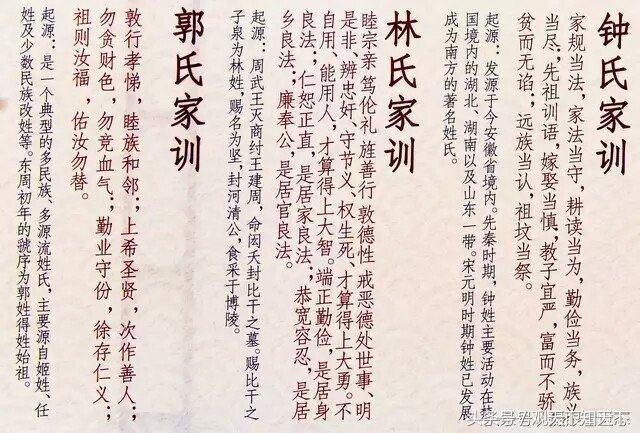 钟氏家训
家规当法，家法当守，耕读当为，勤俭当务，族义
当尽；先祖训语，嫁娶当慎，教子宜严，富而不骄
贫而无谄；远族当认，祖坟当祭。
起源：发源于今安徽省境内。先秦时期，钟姓主要活动在楚
国境内的湖北、湖南以及山东一带。宋元明时期钟姓已发展
成为南方的著名姓氏。
林氏家训
睦宗亲 笃伦礼 旌善行 敦德性 戒恶德处世事、明
是非、辨忠奸、守节义、权生死、才算得上大勇。不
自用、能用人，才算得上大智。端正勤俭，是居身
良法；仁恕正直，是居家良法；恭宽容忍，是居
乡良法；廉奉公，是居官良法。
起源：周武王灭商纣王建周，命闳夭封比干之墓。赐比干之
子泉为林姓，赐名为坚，封河清公，食采于博陵。
郭氏家训
敦行孝悌，睦族和邻；上希圣贤，次作善人；
勿贪财色，勿竞血气；勤业守份，徐存仁义；
祖则汝福，佑汝勿替。
起源：是一个典型的多民族、多源流姓氏，主要源自姬姓、任
姓及少数民族改姓等。东周初年的虢序为郭姓得姓始祖。